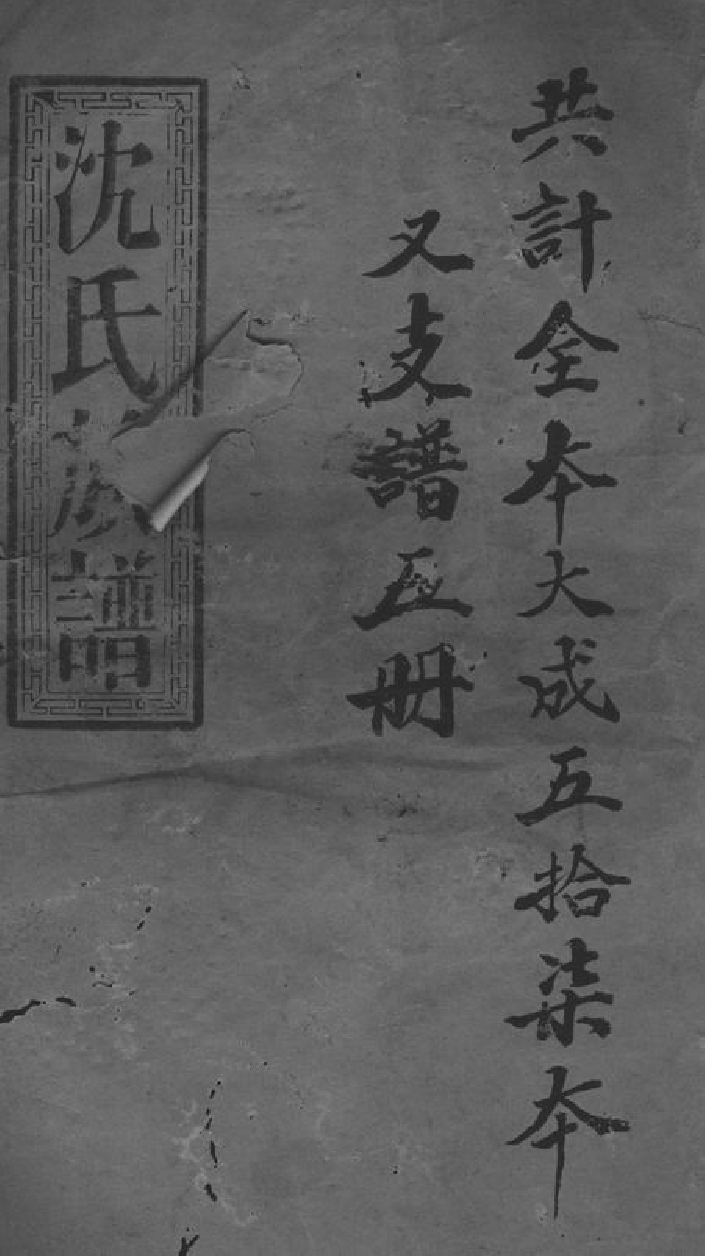 共計全本大成五拾柒本
又支譜五册
沈氏族譜